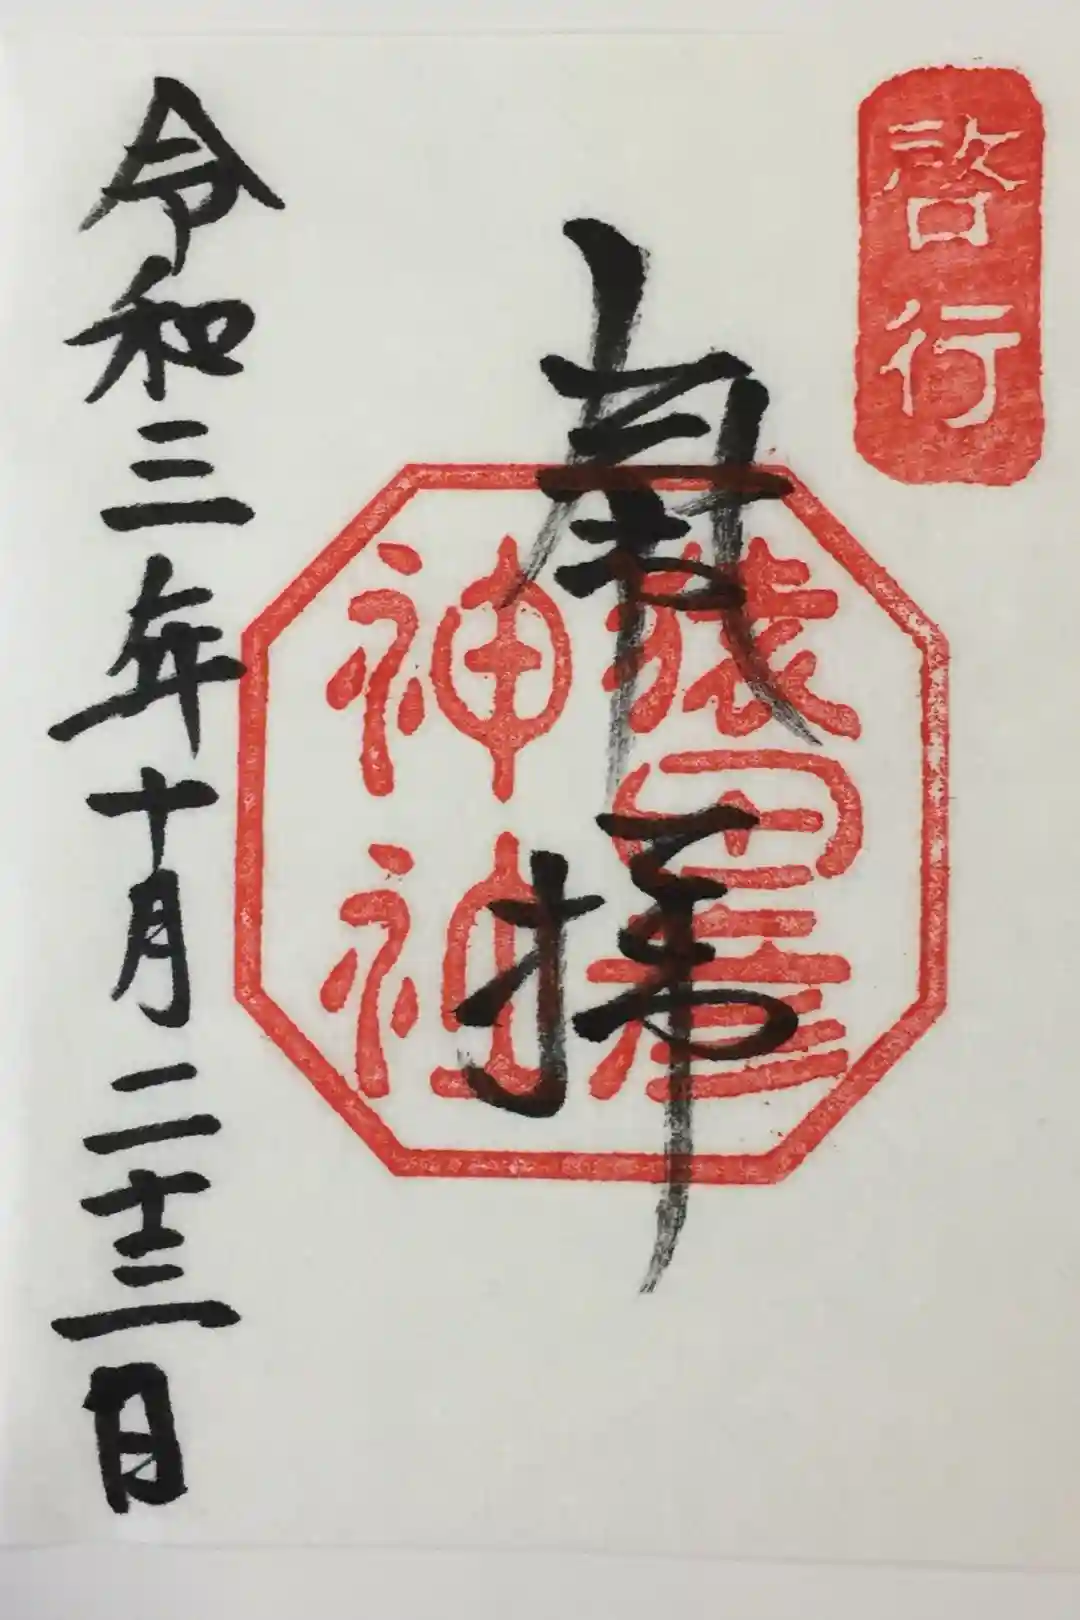 啓行
奉拝
猿田彦
神神社
令和三年十月二十三日